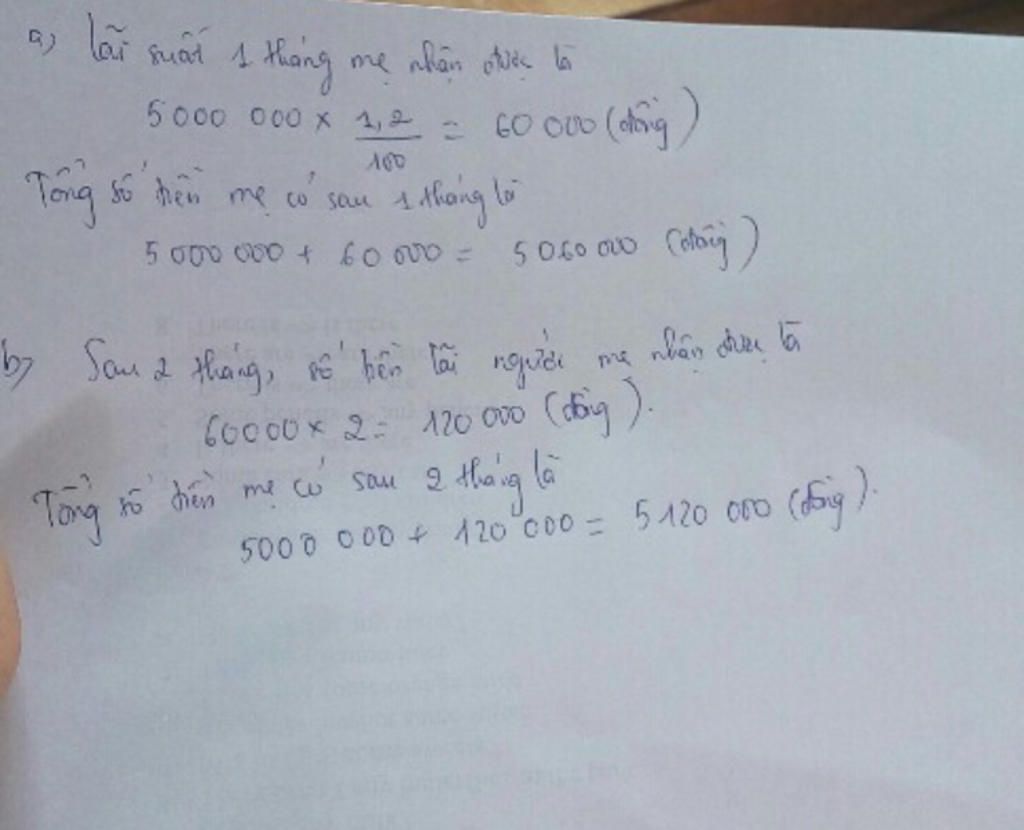 a) Lãi suất 1 tháng mẹ nhận được là
5000 000 × 1,2/100 = 60 000 (đồng)
Tổng số tiền mẹ có sau 1 tháng là
5 000 000 + 60 000 = 5 060 000 (đồng)
b) Sau 2 tháng, số tiền lãi người mẹ nhận được là
60000 × 2 = 120 000 (đồng).
Tổng số tiền mẹ có sau 2 tháng là
5000 000 + 120 000 = 5 120 000 (đồng).